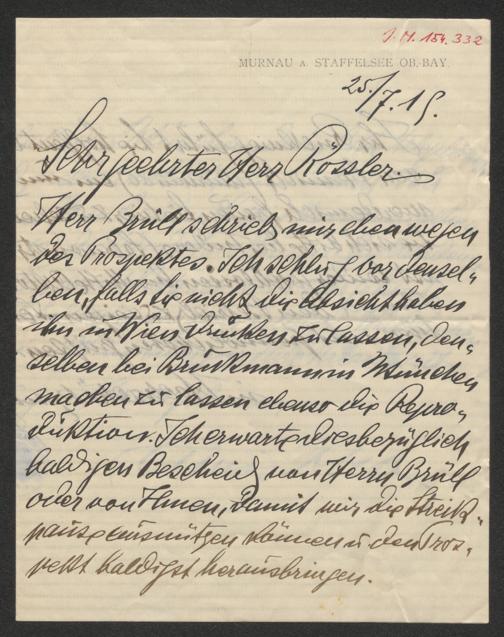 J. N. 154.332
MURNAU A. STAFFELSEE OB.-BAY.
25./7.19.
Sehr geehrter Herr Rössler.
Herr Brüll schrieb mir eben wegen
des Prospektes. Ich schlug vor densel-
ben, falls Sie nicht die Absicht haben
ihn in Wien drucken zu lassen, den-
selben bei Bruckmann in München
machen zu lassen ebenso die Repro-
duktion. Ich erwarte diesbezüglich
baldigen Bescheid von Herrn Brüll
oder von Ihnen, damit wir die
pause ausnützen können u den Pros-
pekt baldigst herausbringen.